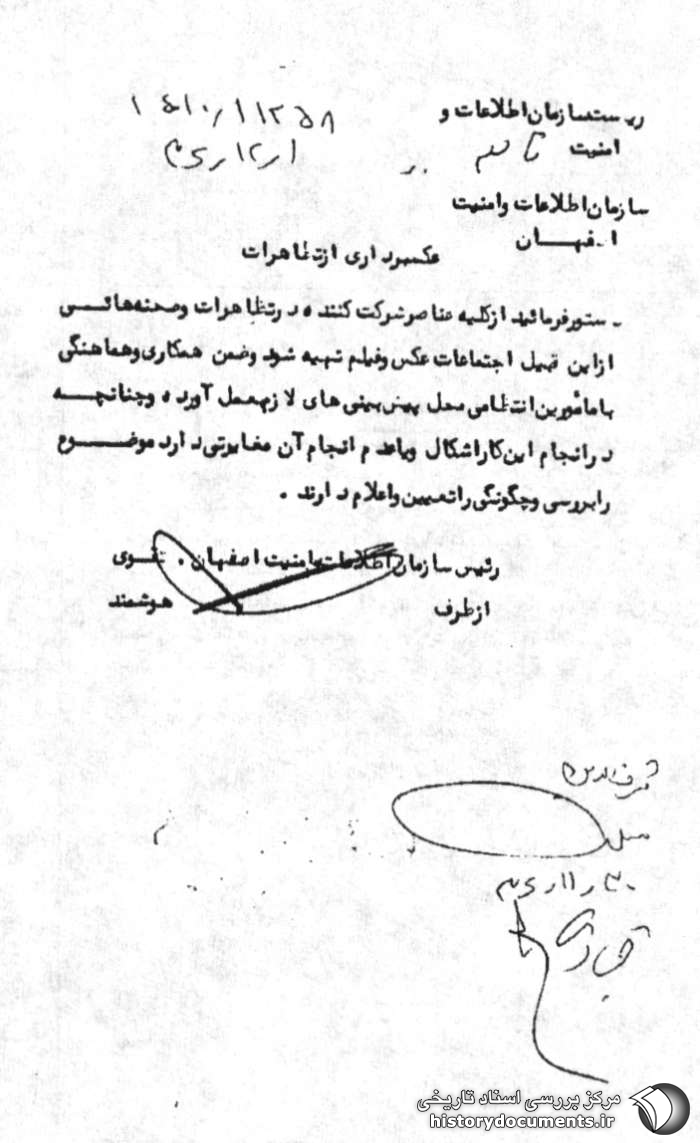 ریاست سازمان اطلاعات و
امنیت
۱۱۲۵۸ / ۱۰ ه‍ ۱
سازمان اطلاعات و امنیت
اصفهان
عکسبرداری از تظاهرات
دستور فرمائید از کلیه عناصر شرکت کننده در تظاهرات و صحنه هائی
از این قبیل اجتماعات عکس و فیلم تهیه شود و ضمن همکاری و هماهنگی
با مأمورین انتظامی محل پیش بینی های لازم بعمل آورده و چنانچه
در انجام این کار اشکال و یا عدم انجام آن مغایرتی دارد موضوع
را بررسی و چگونگی را تعیین و اعلام دارند .
رئیس سازمان اطلاعات و امنیت اصفهان . تقوی
از طرف هوشمند
مرکز بررسی اسناد تاریخی
historydocuments.ir